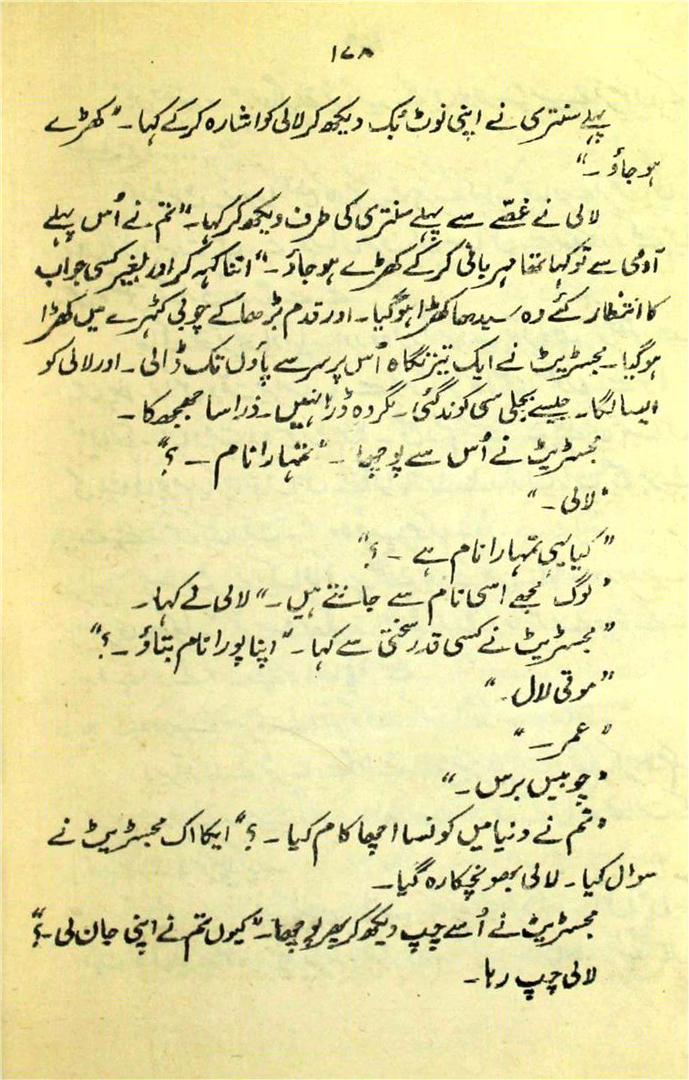 ۱۷۸
پہلے سنتری نے اپنی نوٹ بک دیکھ کر لالی کو اشارہ کرکے کہا۔ "کھڑے
ہو جاؤ۔"
لالی نے غصّے سے پہلے سنتری کی طرف دیکھ کر کہا۔ "تم نے اُس پہلے
آدمی سے تو کہا تھا مہربانی کرکے کھڑے ہو جاؤ۔" اتنا کہہ کر اور بغیر کسی جواب
کا انتظار کئے وہ سیدھا کھڑا ہوگیا۔ اور قدم بڑھا کے چوبی کٹہرے میں کھڑا
ہوگیا۔ مجسٹریٹ نے ایک تیز نگاہ اُس پر سر سے پاؤں تک ڈالی۔ اور لالی کو
ایسا لگا۔ جیسے بجلی سی کوند گئی۔ مگر وہ ڈرا نہیں۔ ذرا سا جھجھکا۔
مجسٹریٹ نے اُس سے پوچھا۔ "تمہارا نام۔ ؟"
"لالی۔"
"کیا یہی تمہارا نام ہے ۔ ؟"
"لوگ مجھے اسی نام سے جانتے ہیں۔" لالی نے کہا۔
"مجسٹریٹ نے کسی قدر سختی سے کہا۔ "اپنا پورا نام بتاؤ۔ ؟"
"موتی لال۔"
"عمر۔"
"چوبیس برس۔"
"تم نے دنیا میں کونسا اچھا کام کیا۔ ؟" ایکا ایک مجسٹریٹ نے
سوال کیا۔ لالی بھونچکا رہ گیا۔
مجسٹریٹ نے اُسے چپ دیکھ کر پھر پوچھا۔ "کیوں تم نے اپنی جان لی۔ ؟"
لالی چپ رہا۔